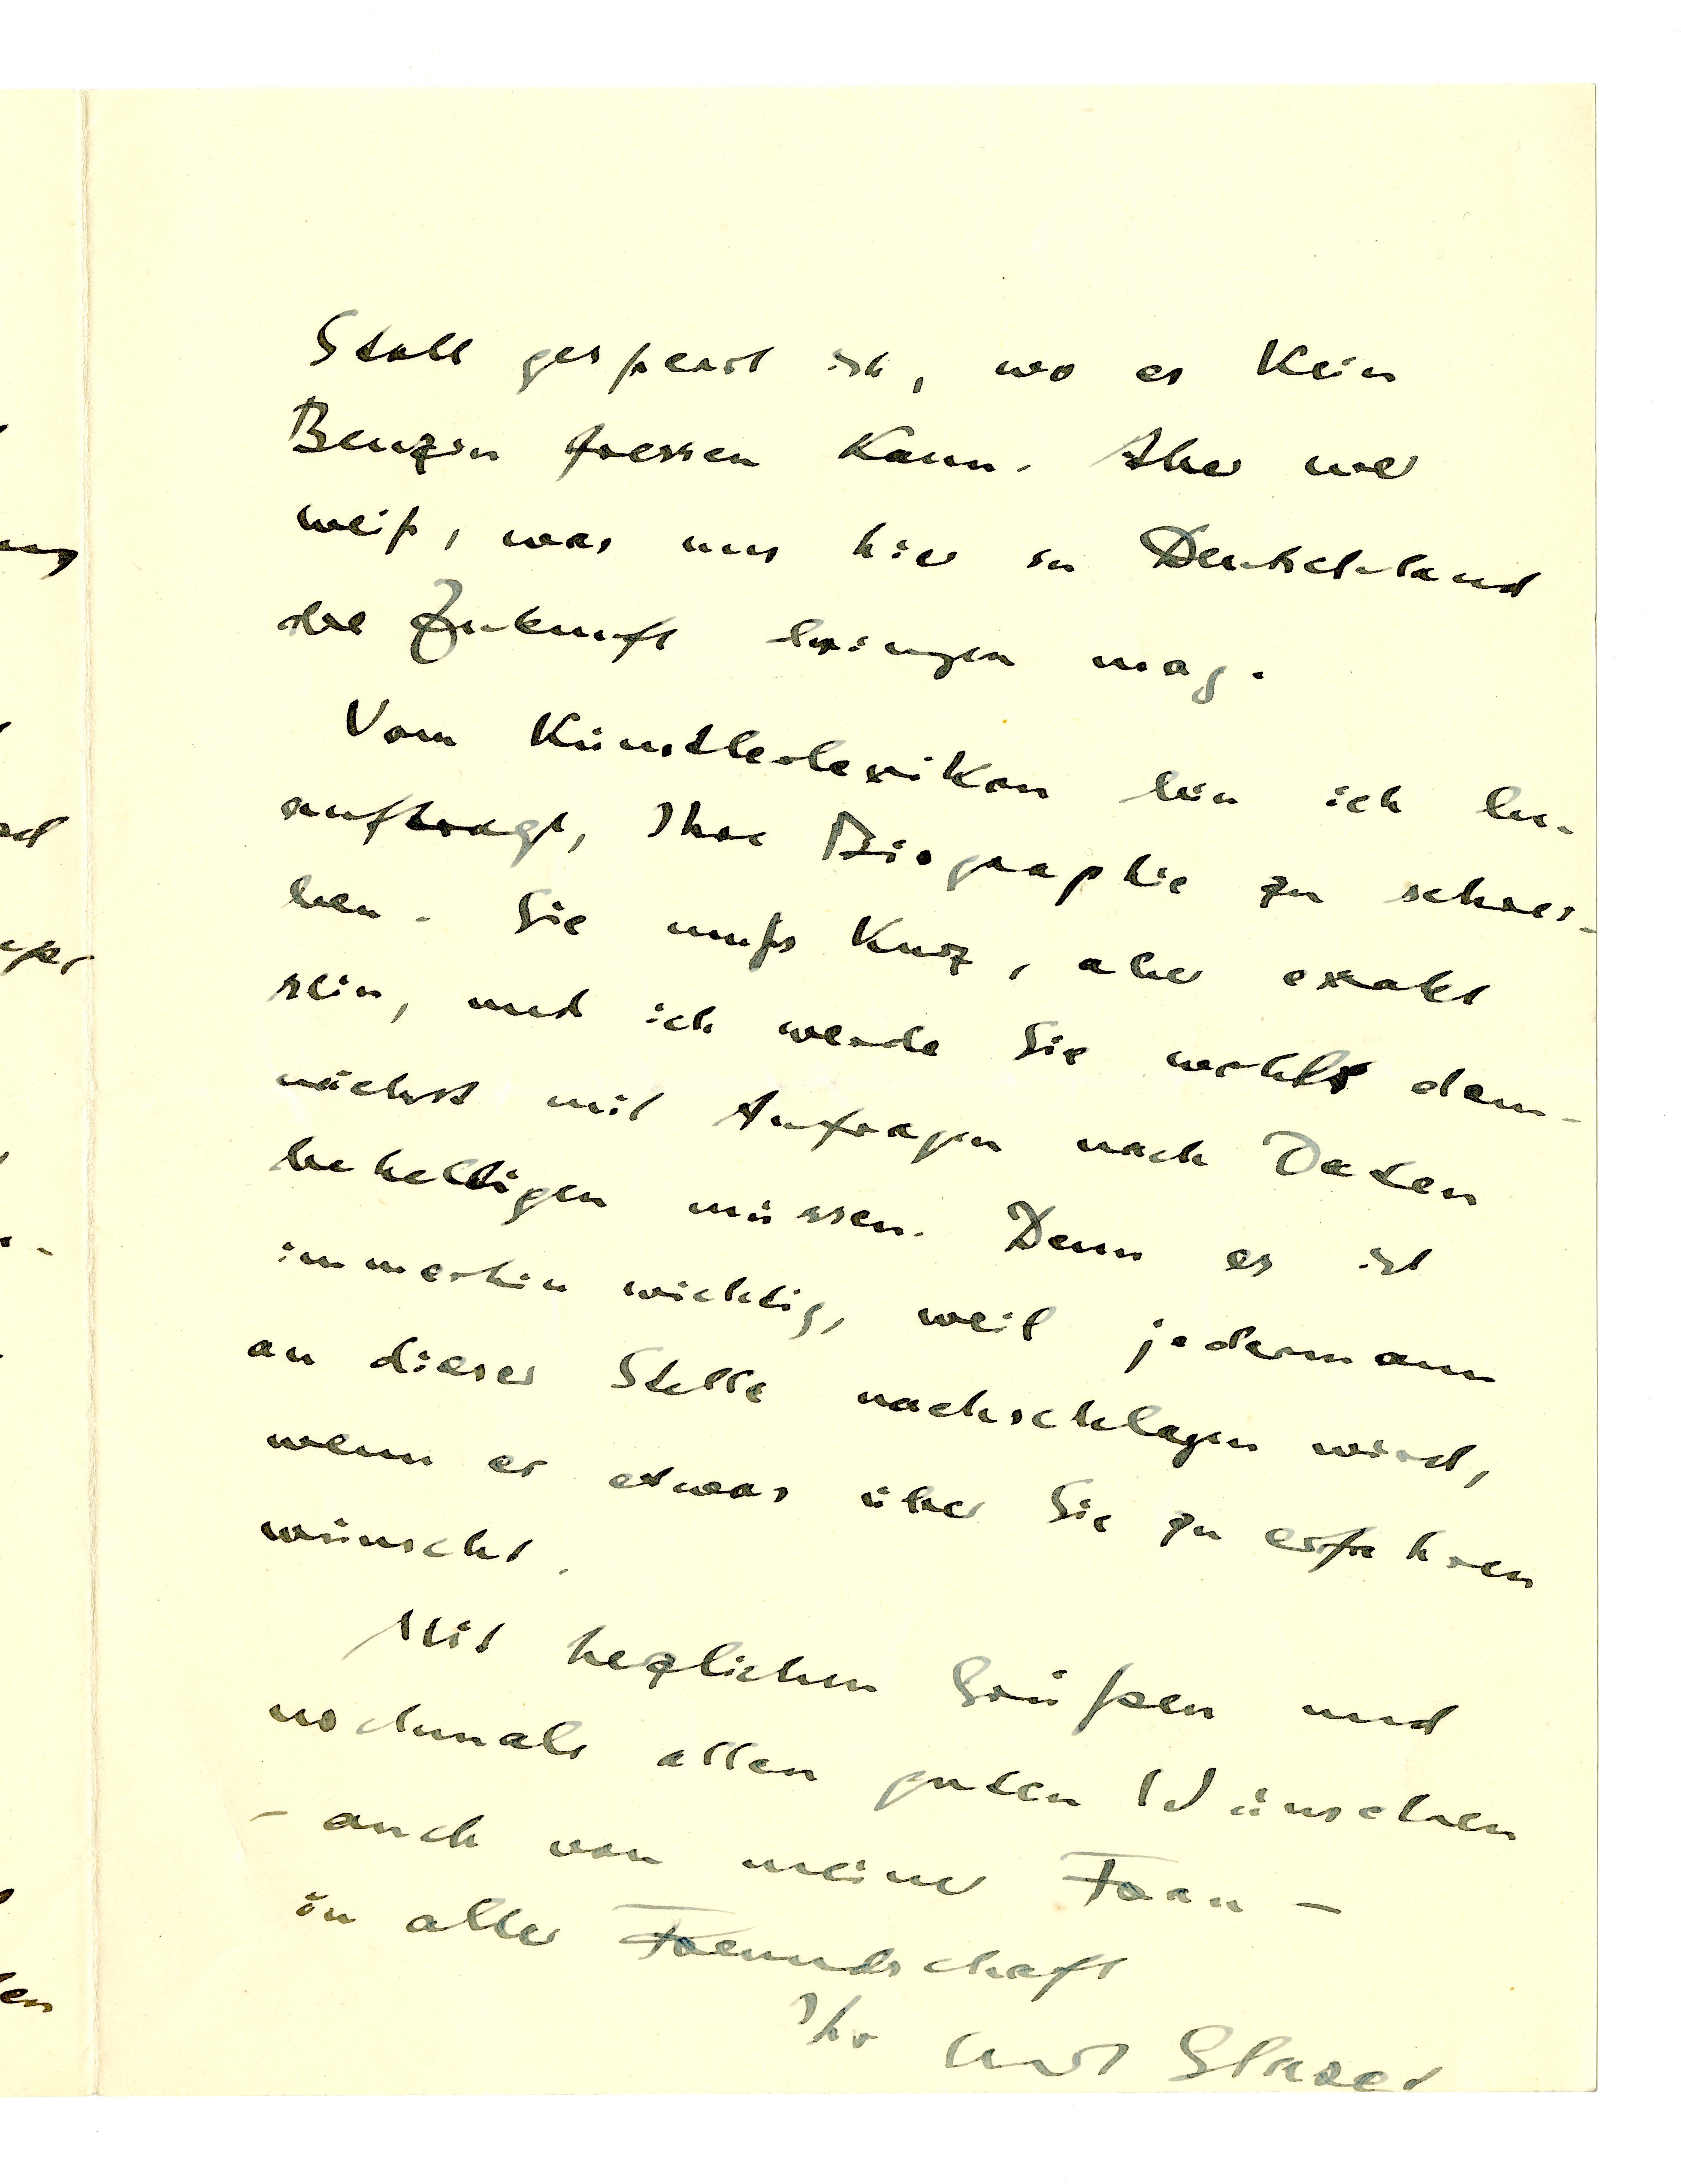 Stall gesperrt ist, wo es kein
Benzin fressen kann. Aber wer
weiß, was uns hier in Deutschland
die Zukunft bringen mag.
Vom Künstlerlexikon bin ich be-
auftragt, Ihre Biographie zu schrei-
ben. Sie muß kurz, aber exakt
sein, und ich werde Sie wohl dem-
nächst mit Anfragen nach Daten
behelligen müssen. Denn es ist
immerhin wichtig, weil jedermann
an dieser Stelle nachschlagen wird,
wenn er etwas über Sie zu erfahren
wünscht.
Mit herzlichen Grüßen und
nochmals allen guten Wünschen
– auch von meiner Frau –
in alter Freundschaft
Ihr Curt Glaser